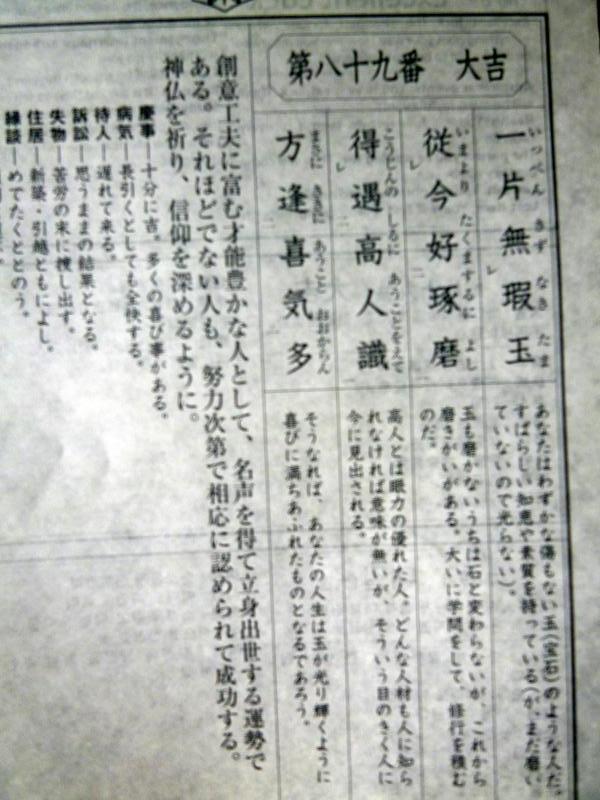 第八十九番　大吉
一片無瑕玉
いっぺん　きず　なき　たま
あなたはわずかな傷もない玉(宝石)のような人だ。
すばらしい知恵や素質を持っている(が、まだ磨い
ていないので光らない)。
従今好琢磨
いまより　たくまするに　よし
玉も磨かないうちは石と変わらないが、これから
磨きがいがある。大いに学問をして、修行を積む
のだ。
得遇高人識
こうじんの　しるに　あうことをえて
高人とは眼力の優れた人。どんな人材も人に知ら
れなければ意味が無いが、そういう目のきく人に
今に見出される。
方逢喜気多
まさに　きさに　あうこと　おおからん
そうなれば、あなたの人生は玉が光り輝くように
喜びに満ちあふれたものとなるであろう。
創意工夫に富む才能豊かな人として、名声を得て立身出世する運勢で
ある。それほどでない人も、努力次第で相応に認められて成功する。
神仏を祈り、信仰を深めるように。
慶事―十分に吉。多くの喜び事がある。
病気―長引くとしても全快する。
待人―遅れて来る。
訴訟―思うままの結果となる。
失物―苦労の末に捜し出す。
住居―新築・引越ともによし。
縁談―めでたくととのう。